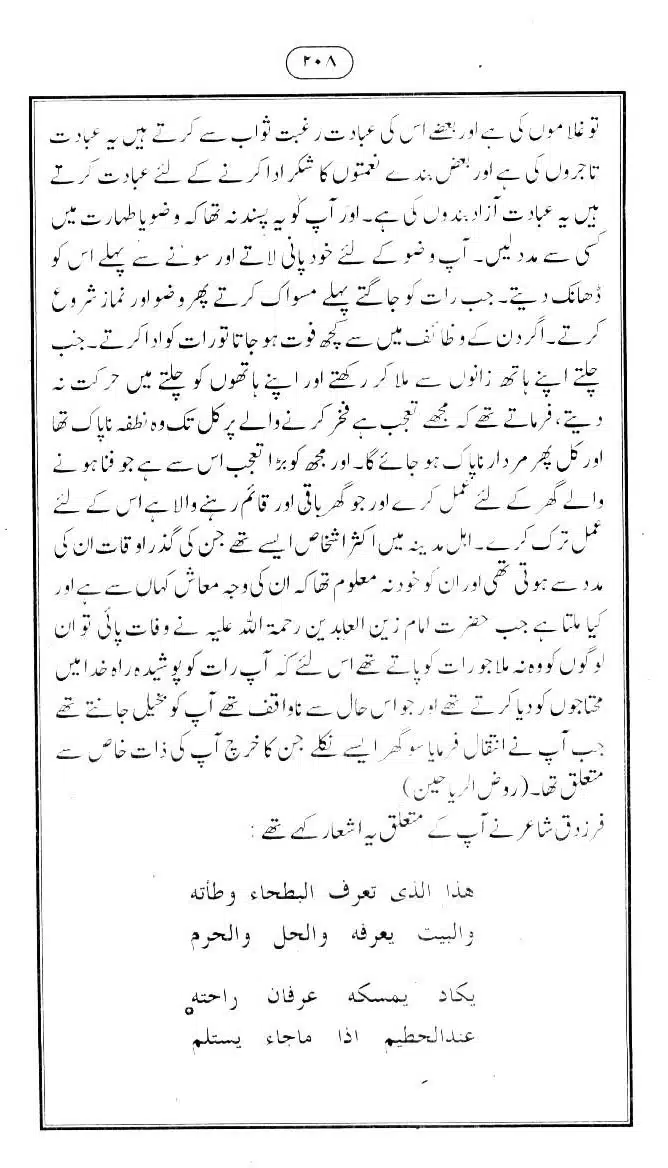 ۲۰۸
تو غلاموں کی ہے اور بعضے اس کی عبادت رغبت ثواب سے کرتے ہیں یہ عبادت
تاجروں کی ہے اور بعض بندے نعمتوں کا شکر ادا کرنے کے لئے عبادت کرتے
ہیں یہ عبادت آزاد بندوں کی ہے۔ اور آپ کو یہ پسند نہ تھا کہ وضو یا طہارت میں
کسی سے مدد لیں۔ آپ وضو کے لئے خود پانی لاتے اور سونے سے پہلے اس کو
ڈھانک دیتے۔ جب رات کو جاگتے پہلے مسواک کرتے پھر وضو اور نماز شروع
کرتے۔ اگر دن کے وظائف میں سے کچھ فوت ہو جاتا تو رات کو ادا کرتے۔ جب
چلتے اپنے ہاتھ زانوں سے ملا کر رکھتے اور اپنے ہاتھوں کو چلتے میں حرکت نہ
دیتے، فرماتے تھے کہ مجھے تعجب ہے فخر کرنے والے پر کل تک وہ نطفہ ناپاک تھا
اور کل پھر مردار ناپاک ہو جائے گا۔ اور مجھ کو بڑا تعجب اس سے ہے جو فنا ہونے
والے گھر کے لئے عمل کرے اور جو گھر باقی اور قائم رہنے والا ہے اس کے لئے
عمل ترک کرے۔ اہل مدینہ میں اکثر اشخاص ایسے تھے جن کی گذر اوقات ان کی
مدد سے ہوتی تھی اور ان کو خود نہ معلوم تھا کہ ان کی وجہ معاش کہاں سے ہے اور
کیا ملتا ہے جب حضرت امام زین العابدین رحمۃ اللہ علیہ نے وفات پائی تو ان
لوگوں کو وہ نہ ملا جو رات کو پاتے تھے اس لئے کہ آپ رات کو پوشیدہ راہ خدا میں
محتاجوں کو دیا کرتے تھے اور جو اس حال سے ناواقف تھے آپ کو بخیل جانتے تھے
جب آپ نے انتقال فرمایا سو گھر ایسے نکلے جن کا خرچ آپ کی ذات خاص سے
متعلق تھا۔ (روض الریاحین)
فرزدق شاعر نے آپ کے متعلق یہ اشعار کہے تھے :
هذا الذى تعرف البطحاء وطأته
والبيت يعرفه والحل والحرم
يكاد يمسكه عرفان راحته
عندالحطيم اذا ماجاء يستلم